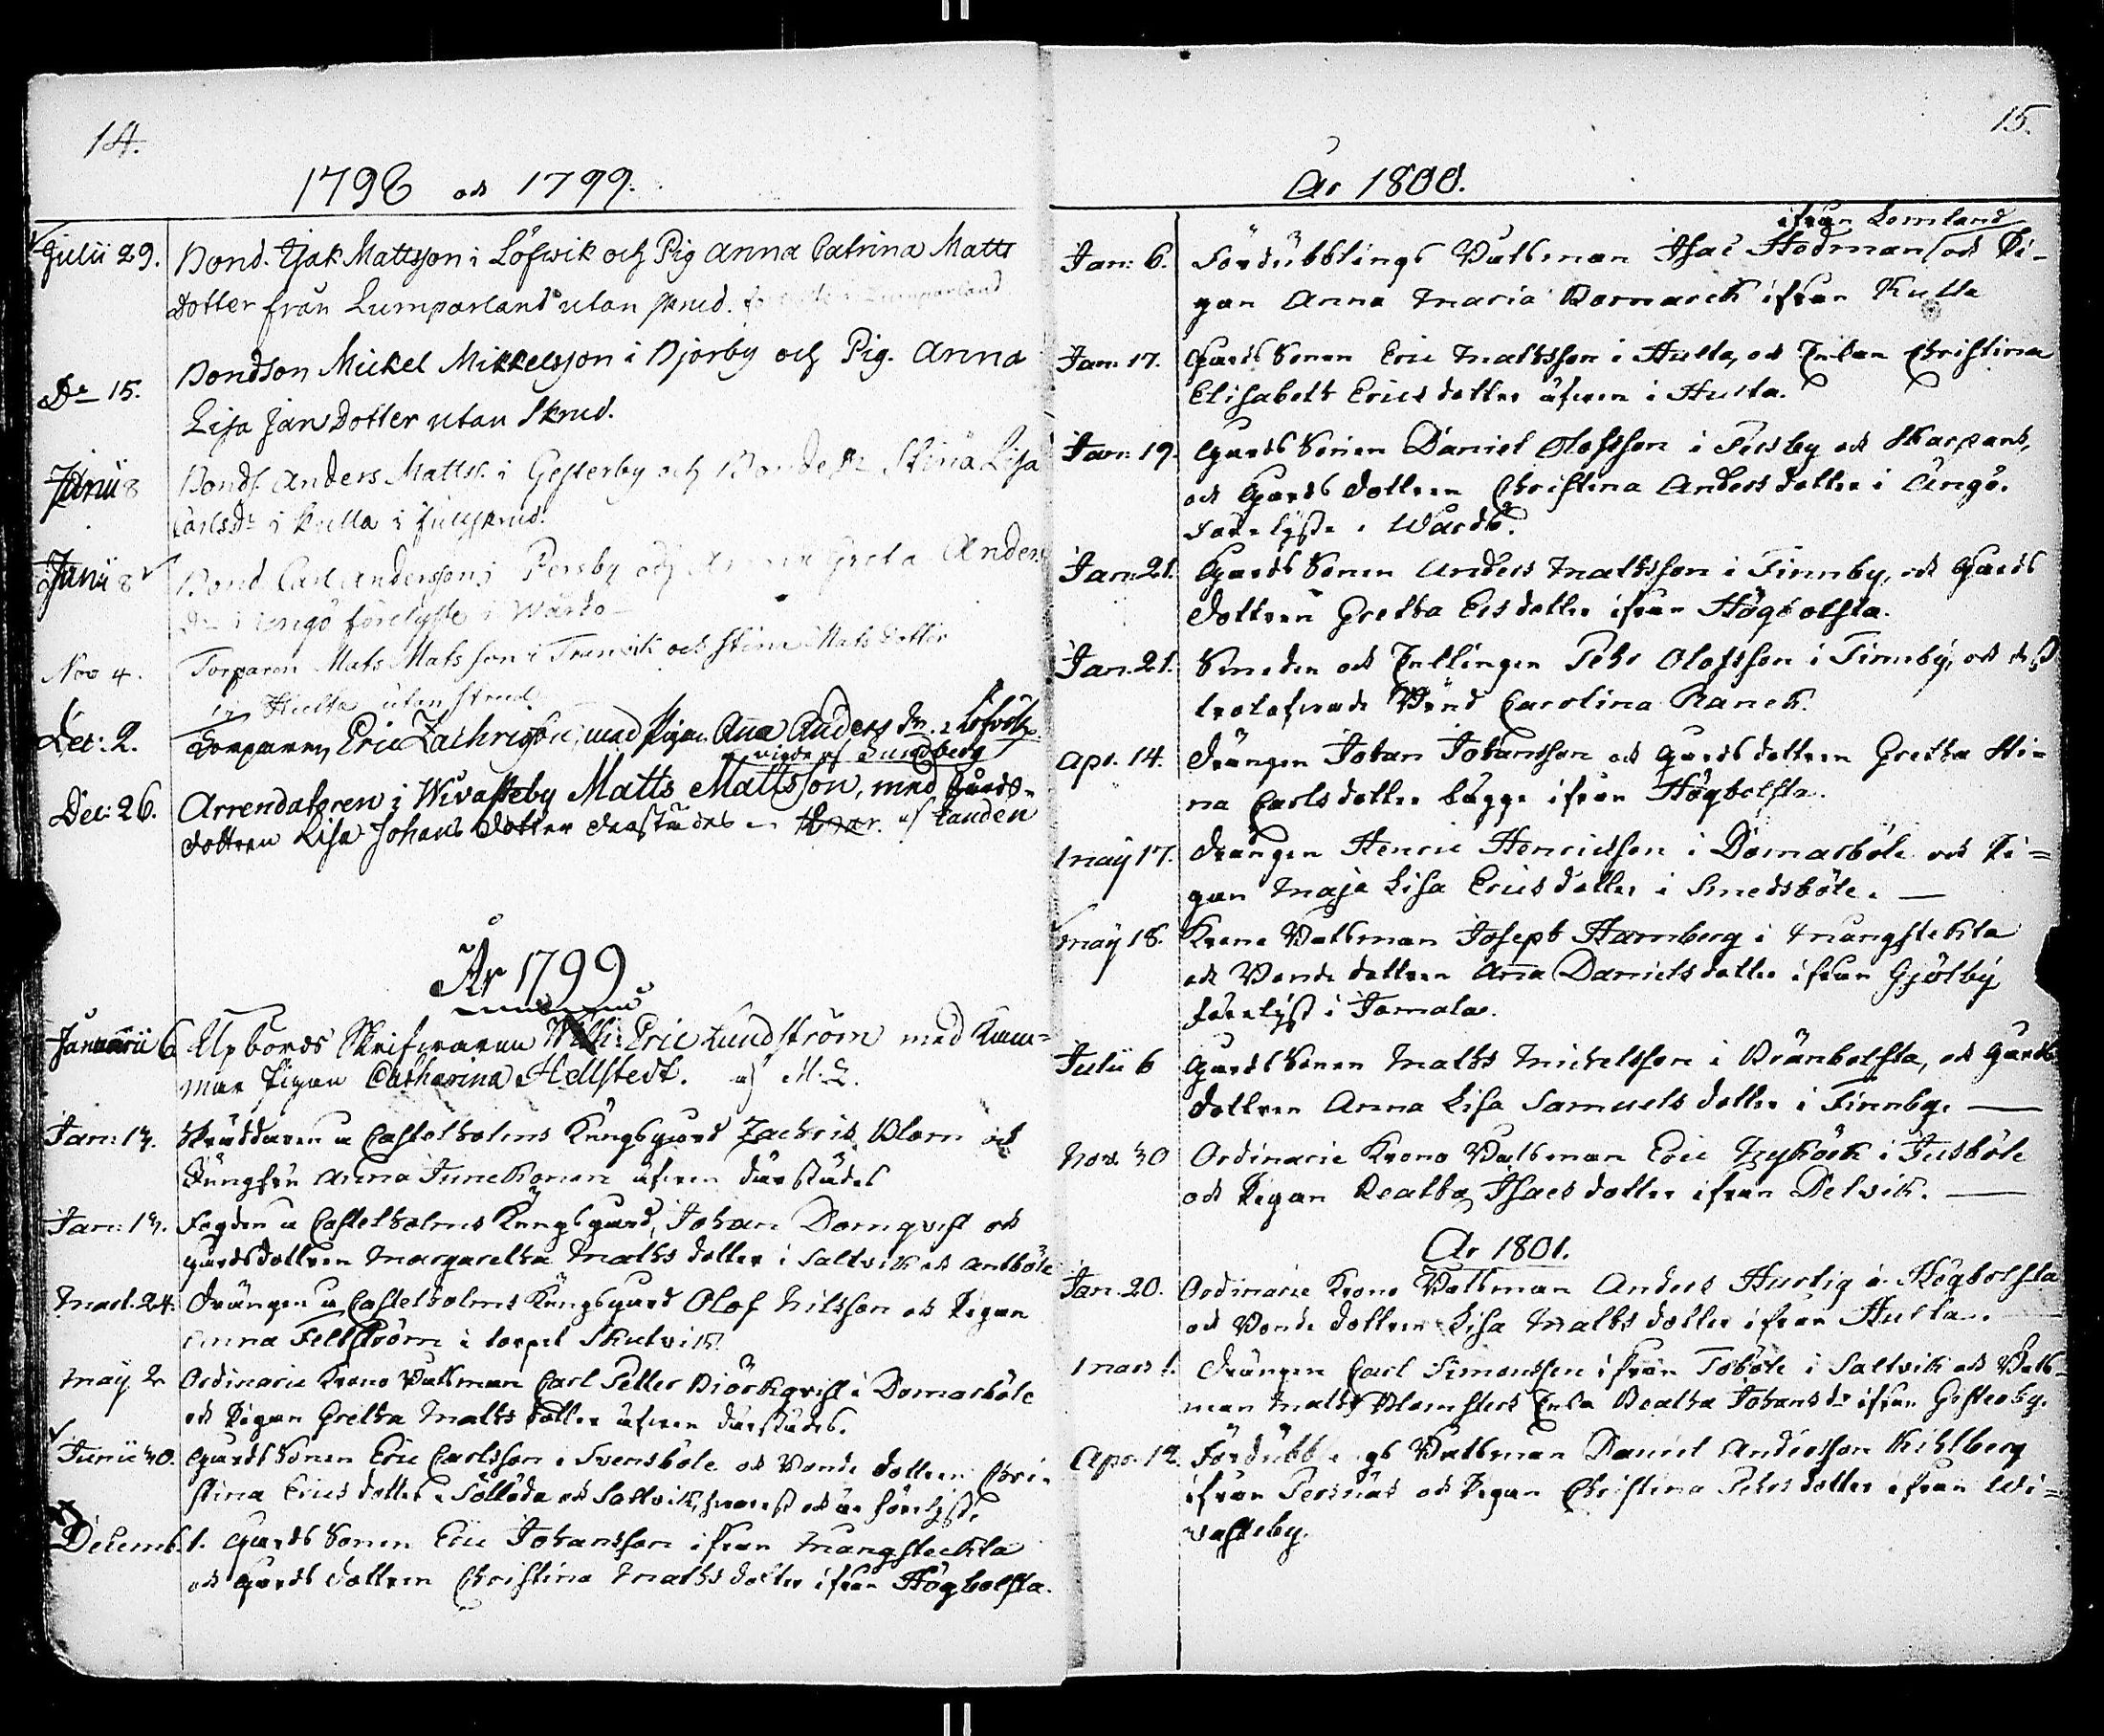 14.
1798 och 1799.
Julii 29. Bond. Isak Mattsson i Löfwik och Pig Anna Catrina Matts
dotter från Lumparland utan skrud. i Lumparland
Dr 15. Bondson Mickel Mikkelsson i Bjorby och Pig. Anna
Lisa Jans Dotter utan Skrud.
Junii 8 Bonds. Anders Matts. i Gesterby och Bonde Dr Stina Lisa
Carlsdr i Kulla i full skrud.
Junii 8 Bond Carl Andersson i Persby och Anna Greta Anders
Dr i Ängö förelyste i Wårdö
Nov 4. Torparen Mats Matsson i Tranvik och Stina Mats dotter
i Hulta utan skrud
Dec: 2. Torparen Eric Zachrisson, med Pigan Anna Anders dr. i Löfvik
vigde af Lundberg
Dec: 26. Arrendatoren i Wivasteby Matts Mattsson, med Gårds-
dottren Lisa Johans Dotter därstädes af Landen
År 1799
Januarii 6 Upbörds Skrifwaren Eric Lundström med Kam-
mar Pigan Catharina Hellstedt. af M. L.
Jan: 13. Skräddaren a Castelholms Kungsgård Zachris Blom och
Jungfru Anna Junelionen äfven därstädes
Jan: 13. Fogden a Castelholms Kungsgård, Johan Domqvist och
gårdsdottren Margaretha Maths dotter i Saltvik och Antböle
Mart. 24. Drängen a Castelholms Kungsgård Olof Nilsson och Pigan
Anna Fellström i torpet Skutvik
May 2 Ordinarie Krono Båtsman Carl Petter Biörkqvist i Domarböle
och Pigan Gretha Maths dotter äfven därstädes.
Junii 30. Gårds Sonen Eric Carlsson i Svensböle och Bonde dottren Chri-
stina Erics dotter i Sålloda och Saltvik, hvarest ock är förelyst.
Decemb. 1. Gårds Sonen Eric Johansson ifrån Mångstekta
och Gårds dottren Christina Maths dotter ifrån Högbolsta.
15.
År 1800.
ifrån Lemland
Jan: 6. Fördubblings Båtsman Isac Stedman och Pi-
gan Anna Maria Bomarck ifrån Kulla
Jan: 17. Gårds Sonen Eric Mathsson i Hulta, och Enkan Christina
Elisabeth Erics dotter äfven i Hulta.
Jan: 19. Gårds Sonen Daniel Olofsson i Persby och Skarpans,
och Gårds dottren Christina Anders dotter i Ängö.
Förelyste i Wårdö.
Jan: 21. Gårds Sonen Anders Mathsson i Finnby, och Gårds
dottren Gretha Ers dotter ifrån Högbolsta.
Jan. 21. Smeden och Enklingen Pehr Olofsson i Finnby, och dess
trolofvade Brud Carolina Ranck.
Apr. 14. Drängen Johan Johansson och Gårds dottren Gretha Sti-
na Carls dotter bägge ifrån Högbolsta.
May 17. Drängen Henric Henricsson i Domarböle och Pi-
gan Maja Lisa Erics dotter i Smedsböle.
May 18. Krono Båtsman Joseph Hamberg i Mångstekta
och Bonde dottren Anna Daniels dotter ifrån Gjölby
förelyst i Jomala.
Julii 6 Gårds Sonen Maths Michelsson i Bränbolsta, och Gårds
dottren Anna Lisa Samuels dotter i Finnby.
Nov: 30 Ordinarie Krono Båtsman Eric i Jusböle
och Pigan Beatha Isacs dotter ifrån Delvik.
År 1801.
Jan. 20. Ordinarie Krono Båtsman Anders Hurtig i Högbolsta
och Bonde dottren Lisa Maths dotter ifrån Hulta.
Mars 1. Drängen Carl Simonsson ifrån Toböle i Saltvik och Båts-
man Maths Blomsters Enka Beatha Johans dr ifrån Gesterby.
Apr. 12. Fördubblings Båtsman Daniel Andersson Kihlberg
ifrån Persnäs och Pigan Christina Pehrs dotter ifrån Wi-
vasteby.